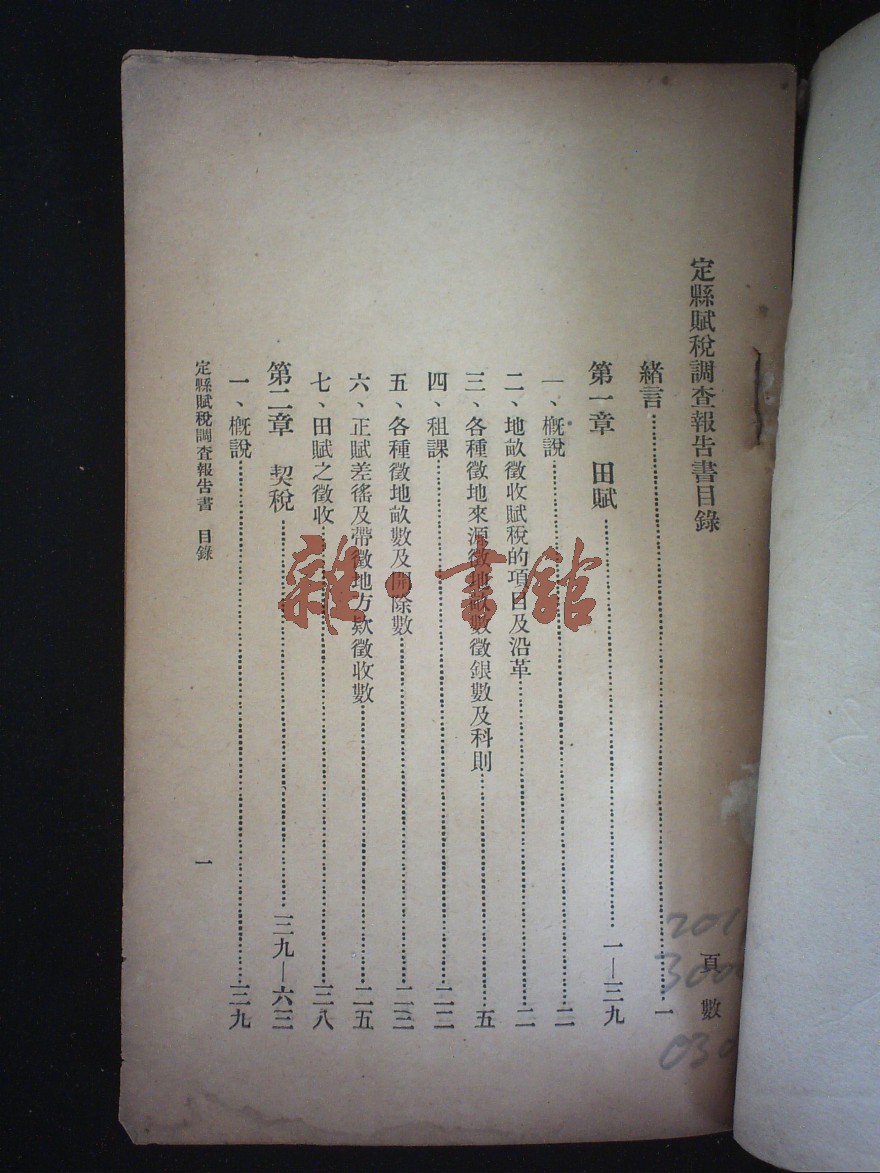 定縣賦稅調查報告書目錄
頁數
緒言⋯⋯一
第一章 田賦⋯⋯一—三九
一、概說⋯⋯二
二、地畝徵收賦稅的項目及沿革⋯⋯二
三、各種徵地來源徵地畝數徵銀數及科則⋯⋯五
四、租課⋯⋯二二
五、各種徵地畝數及開除數⋯⋯二三
六、正賦差徭及帶徵地方欵徵收數⋯⋯二五
七、田賦之徵收⋯⋯三八
第二章 契稅⋯⋯三九—六三
一、概說⋯⋯三九
定縣賦稅調查報告書 目錄
一
雜·書館